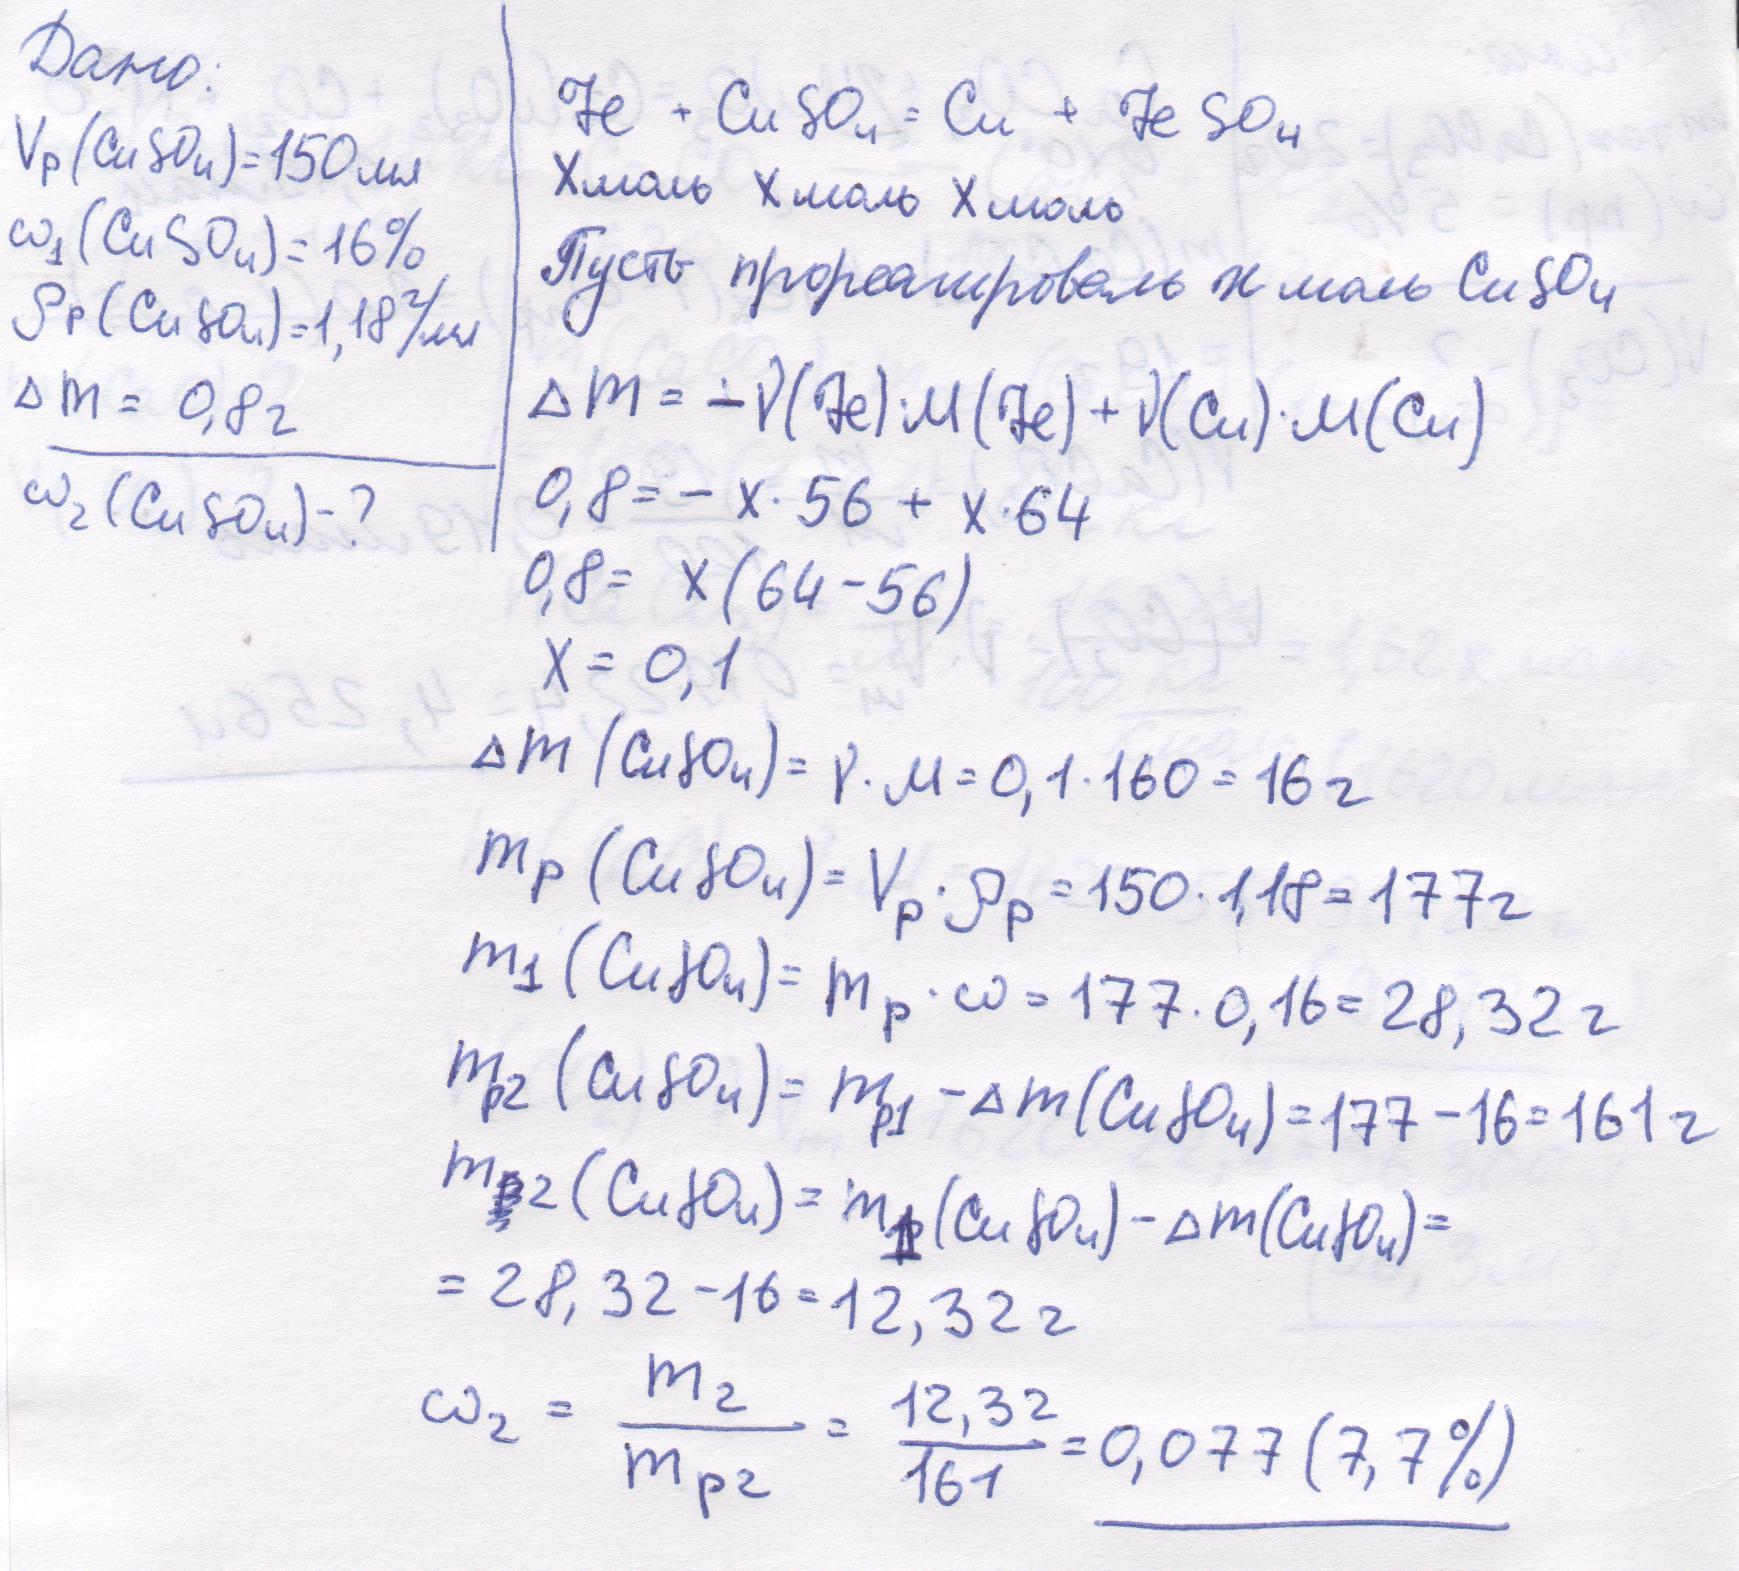 Дано:
Vр(CuSO₄)=150мл
ω₁(CuSO₄)=16%
ρр(CuSO₄)=1,18г/мл
Δm = 0,8г
ω₂(CuSO₄)-?
Fe + CuSO₄ = Cu + FeSO₄
Xмоль Xмоль Xмоль
Пусть прореагировало x моль CuSO₄
Δm = -ν(Fe)·M(Fe)+ν(Cu)·M(Cu)
0,8= - x·56 + x·64
0,8= x(64-56)
X = 0,1
Δm (CuSO₄)= ν·M=0,1·160=16г
mр (CuSO₄)= Vр·ρр =150·1,18=177г
m₁(CuSO₄)= mр·ω=177·0,16=28,32г
mр₂(CuSO₄)= mр₁ -Δm(CuSO₄)=177-16=161г
m₂(CuSO₄)= m₁(CuSO₄)-Δm(CuSO₄)=
= 28,32-16=12,32г
ω₂ = m₂/mр₂ = 12,32/161 =0,077(7,7%)